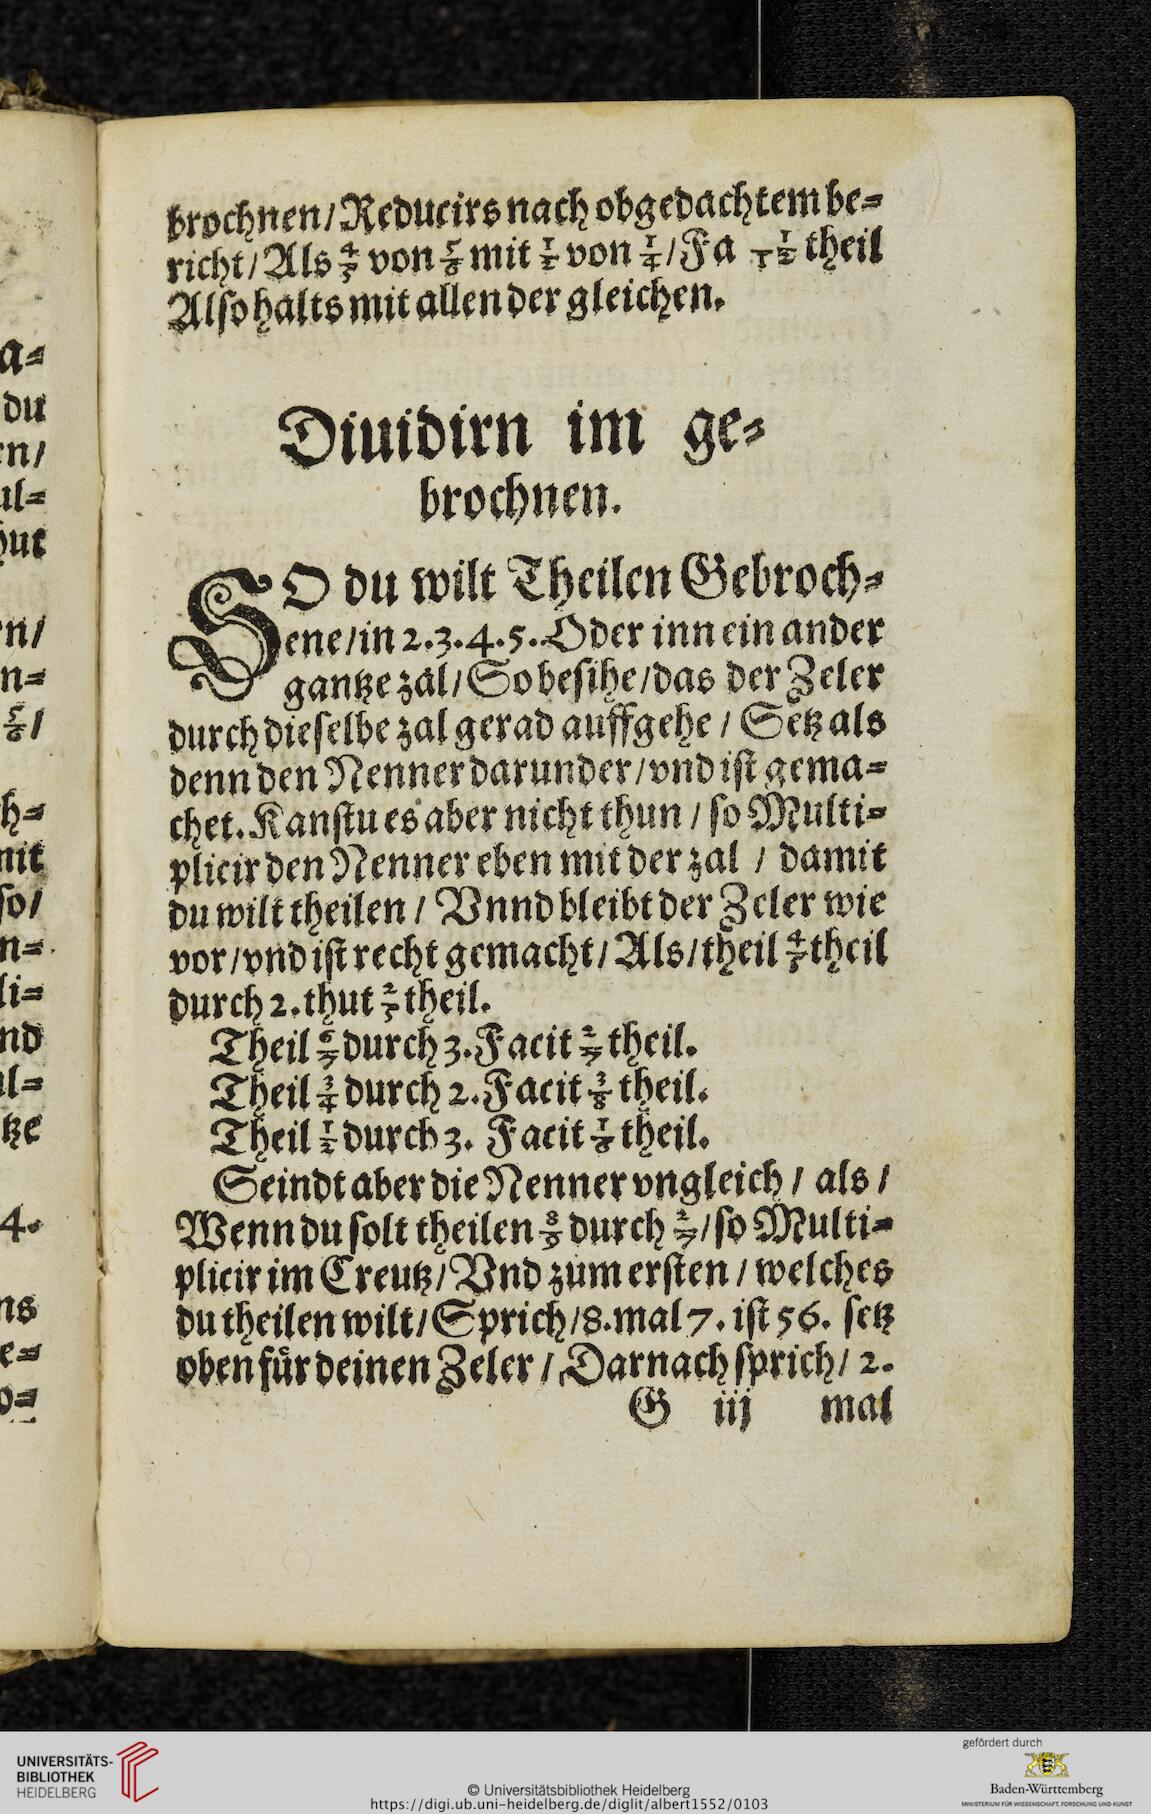 brochnen/Reducirs nach obgedachtem be⸗
richt/Als 4/5 von 5/6 mit 1/2 von 1/4/Fa 1/12 theil
Also halts mit allen der gleichen.
Diuidirn im ge⸗
brochnen.
SO du wilt Theilen Gebroch⸗
ene/in 2.3.4.5. Oder inn ein ander
gantze zal/So besihe/das der Zeler
durch dieselbe zal gerad auffgehe / Setz als
denn den Nenner darunder/vnd ist gema⸗
chet. Kanstu es aber nicht thun / so Multi⸗
plicir den Nenner eben mit der zal / damit
du wilt theilen / Vnnd bleibt der Zeler wie
vor/vnd ist recht gemacht/Als/theil 4/5 theil
durch 2. thut 2/5 theil.
Theil 6/7 durch 3. Facit 2/7 theil.
Theil 3/4 durch 2. Facit 3/8 theil.
Theil 1/2 durch 3. Facit 1/6 theil.
Seindt aber die Nenner vngleich / als /
Wenn du solt theilen 8/9 durch 2/7/so Multi⸗
plicir im Creutz/Vnd zum ersten / welches
du theilen wilt/Sprich/8.mal 7. ist 56. setz
oben für deinen Zeler / Darnach sprich/ 2.
G iij mal
a⸗
du
rn/
ul⸗
n/
n⸗
5/6/
h⸗
mit
so/
n⸗
li⸗
nd
l⸗
tze
4.
ns
e⸗
o⸗
UNIVERSITÄTS-
BIBLIOTHEK
HEIDELBERG
© Universitätsbibliothek Heidelberg
https://digi.ub.uni-heidelberg.de/diglit/albert1552/0103
gefördert durch
Baden-Württemberg
MINISTERIUM FÜR WISSENSCHAFT, FORSCHUNG UND KUNST